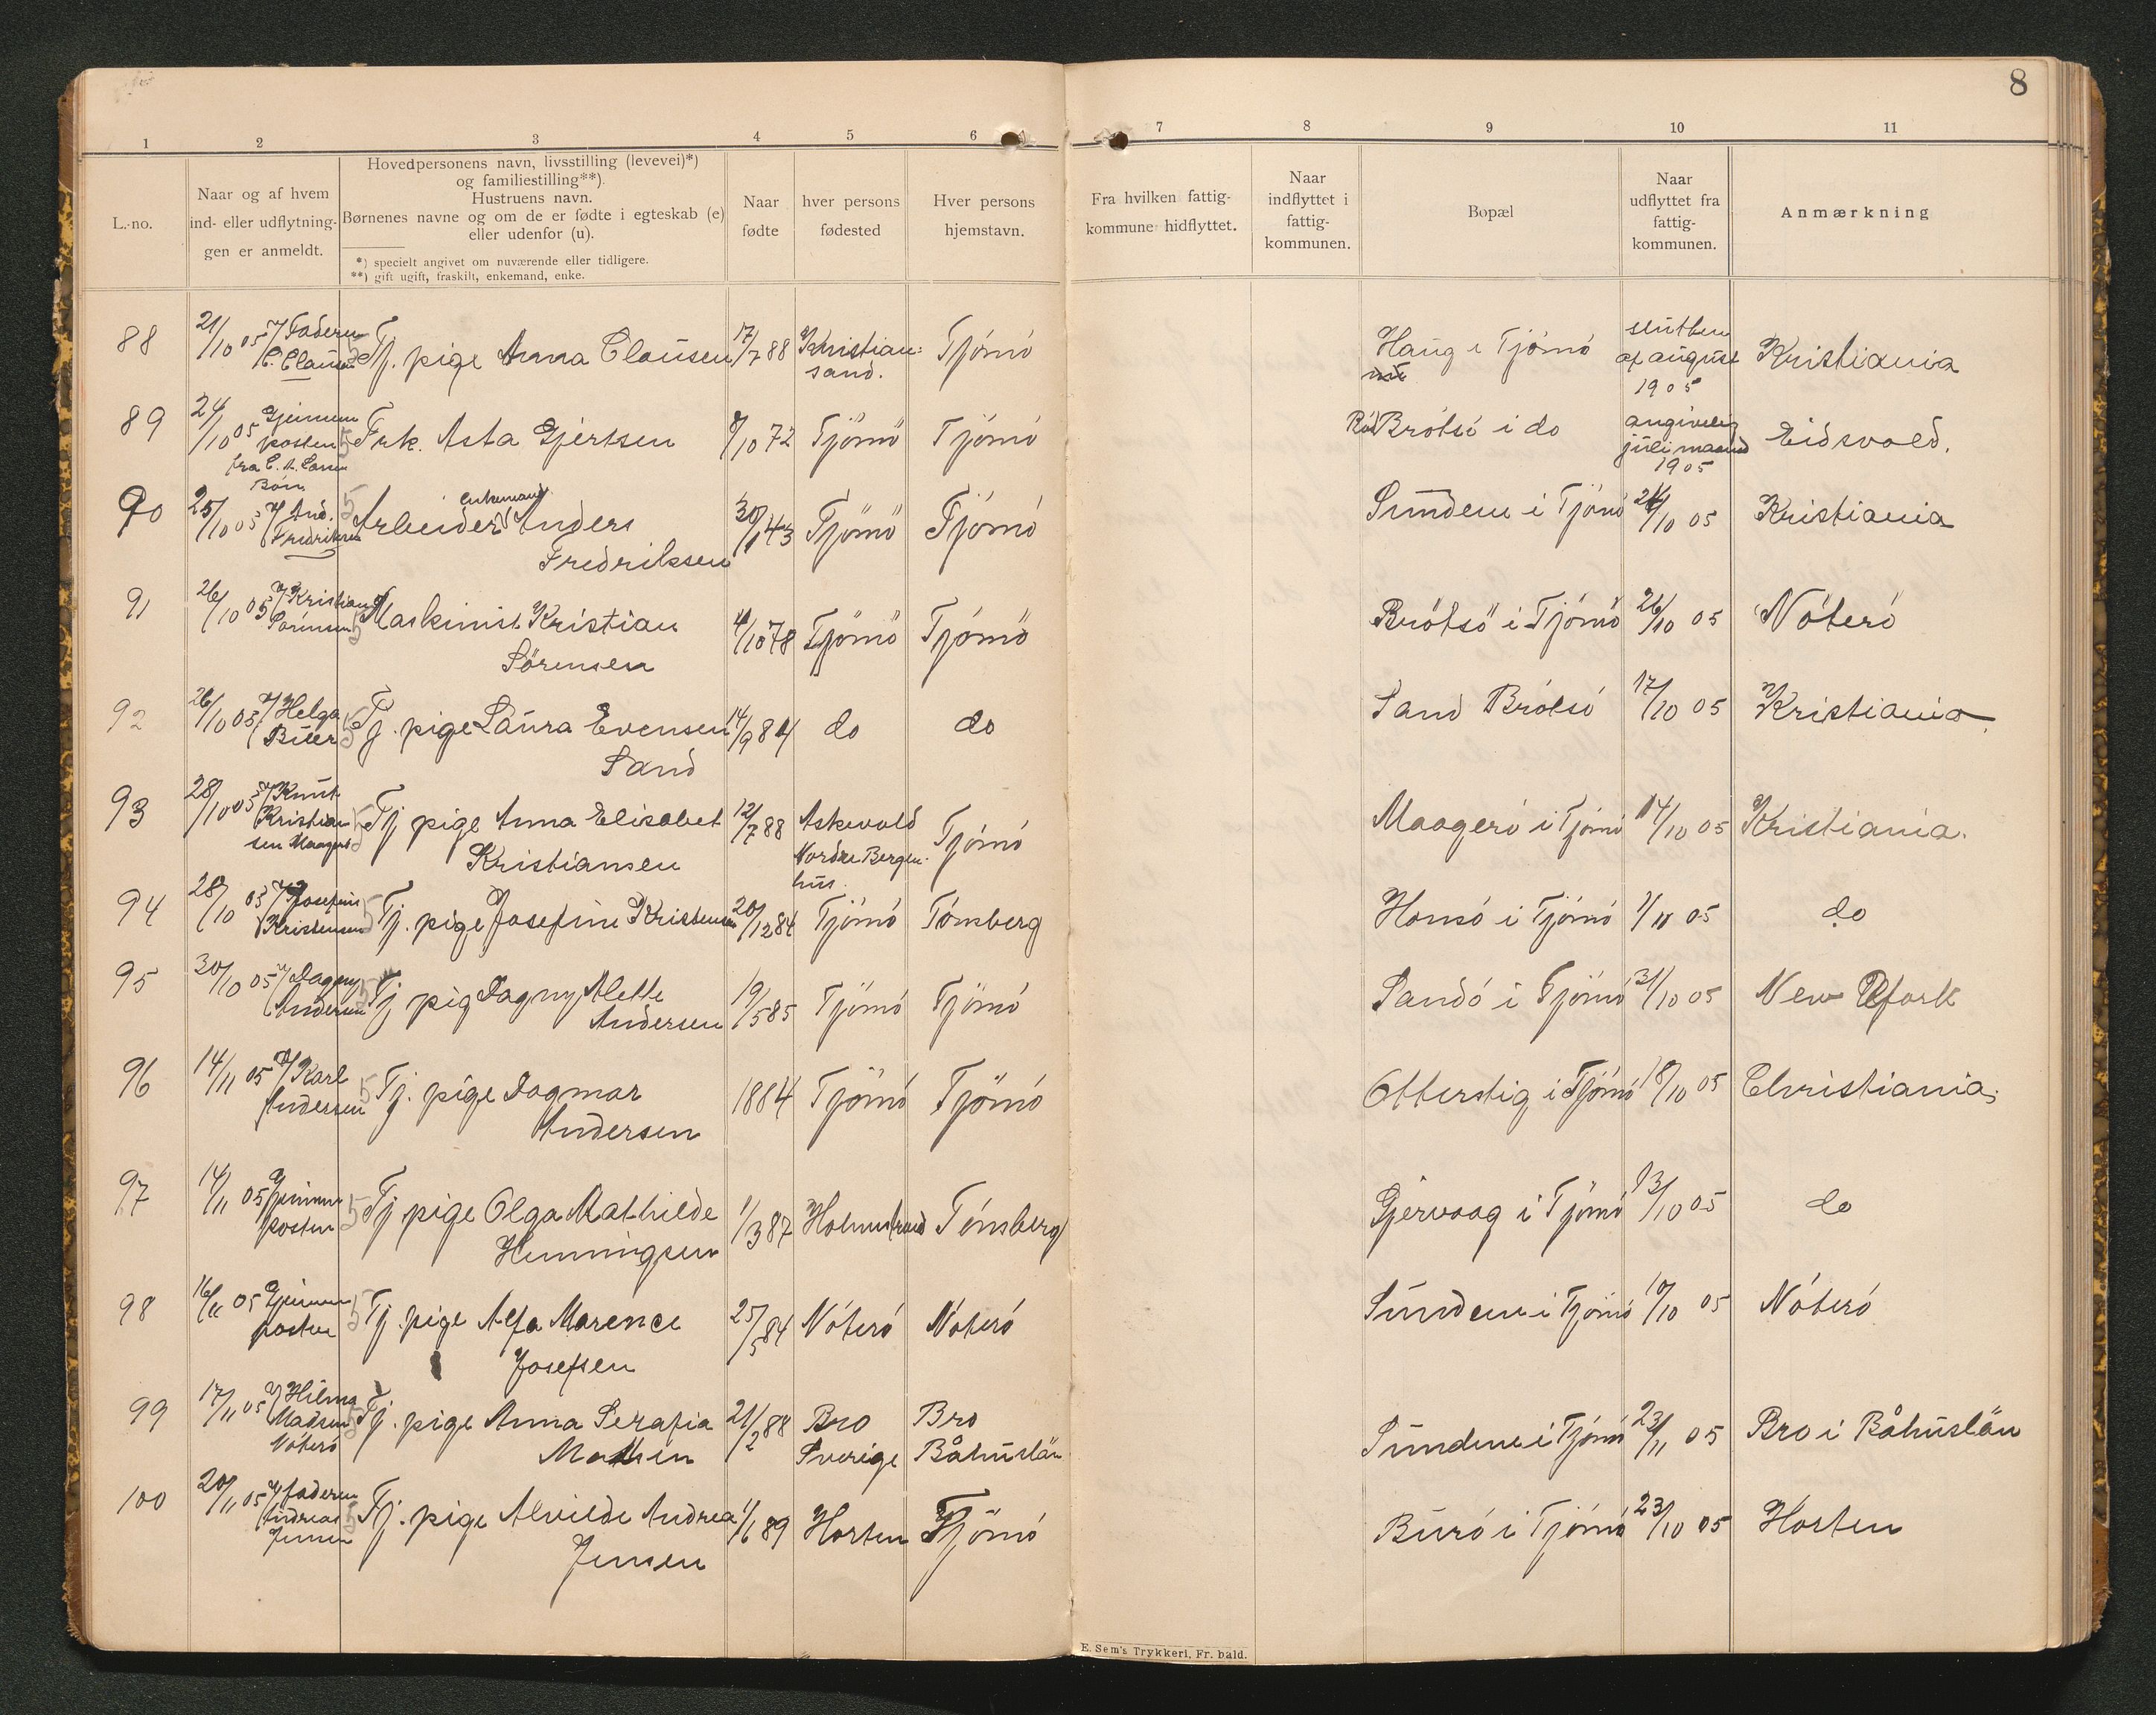 8
1 2 3 4 5 6 7 8 9 10 11
L.-no.
Naar og af hvem
ind- eller udflytnin-
gen er anmeldt.
Hovedpersonens navn, livsstilling (levevei)*)
og familiestilling**).
Hustruens navn.
Børnenes navne og om de er fødte i egteskab (e)
eller udenfor (u).
*) specielt angivet om nuværende eller tidligere.
**) gift ugift, fraskilt, enkemand, enke.
Naar
fødte
hver persons
fødested
Hver persons
hjemstavn.
Fra hvilken fattig-
kommune hidflyttet.
Naar
indflyttet i
fattig-
kommunen.
Bopæl
Naar
udflyttet fra
fattig-
kommunen.
Anmærkning
88 21/10 05 Faderen Tj. pige Anna Clausen 17/7 88 Kristian: Tjömö Haug i Tjömö slutten Kristiania
C. Clausen sand. af august
1905
89 24/10 05 Gjennem Frk. Asta Gjertsen 8/10 72 Tjömö Tjömö Brötsö i do angivelig Eidsvold.
posten juli maaned
fra C. A. 1905
90 25/10 05 And. Arbeider enkemand Anders 30/1 43 Tjömö Tjömö Sundene i Tjömö 24/10 05 Kristiania
Fredriksen Fredriksen
91 26/10 05 Kristian Maskinist Kristian 4/10 78 Tjömö Tjömö Brötsö i Tjömö 26/10 05 Nöterö
Sörensen Sörensen
92 26/10 05 Helga Tj. pige Laura Evensen 14/9 84 do do Sand Brötsö 17/10 05 Kristiania.
Buer Sand
93 28/10 05 Knut Tj pige Anna Elisabet 12/7 88 Askevold Tjömö Maagerö i Tjömö 14/10 05 Kristiania.
Kristian Kristiansen Nordre Bergen-
sen Maagerö hus.
94 28/10 05 Josefine Tj. pige Josefine Kristensen 20/12 84 Tjömö Tönsberg Honsö i Tjömö 1/11 05 do
Kristensen
95 30/10 05 Dagny Tj pig Dagny Alette 19/5 85 Tjömö Tjömö Sandö i Tjömö 31/10 05 New York
Andersen Andersen
96 14/11 05 Karl Tj. pige Dagmar 1884 Tjömö Tjömö Otterstig i Tjömö 18/10 05 Christiania.
Andersen Andersen
97 14/11 05 Gjennem Tj pige Olga Mathilde 1/3 87 Holmestrand Tönsberg Gjervaag i Tjömö 13/10 05 do
posten Henningsen
98 16/11 05 Gjennem Tj. pige Alfa Marence 25/5 84 Nöterö Nöterö Sundene i Tjömö 10/10 05 Nöterö
posten Josefsen
99 17/11 05 Hilma Tj. pige Anna Serafia 21/2 88 Bro Bro Sundene i Tjömö 23/11 05 Bro i Båhuslän
Madsen Sverige Båhuslän
Nöterö
100 20/11 05 faderen Tj. pige Alvilde Andrea 1/1 89 Horten Tjömö Burö i Tjömö 23/10 05 Horten
Andreas Jensen
Jensen
E. Sem's Trykkeri, Fr.hald.